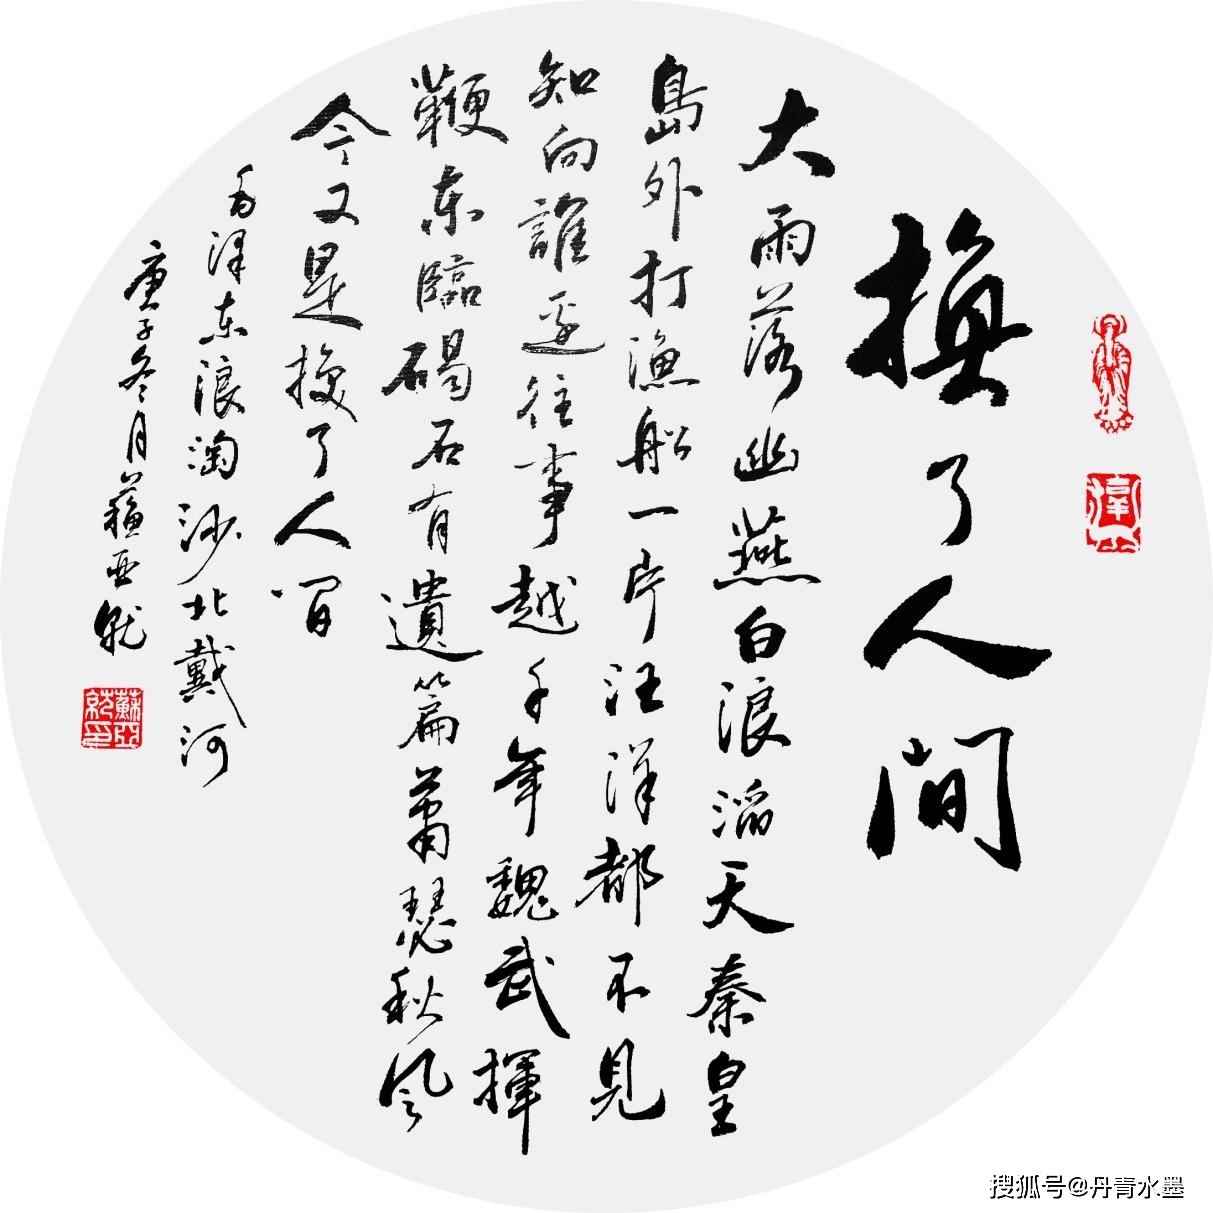 換了人间
大雨落幽燕白浪滔天秦皇
島外打漁船一片汪洋都不見
知向誰邊往事越千年魏武揮
鞭東臨碣石有遺篇蕭瑟秋風
今又是換了人间
毛澤東浪淘沙北戴河
庚子冬月蘇亞就
蘇亞就印
搜狐号@丹青水墨